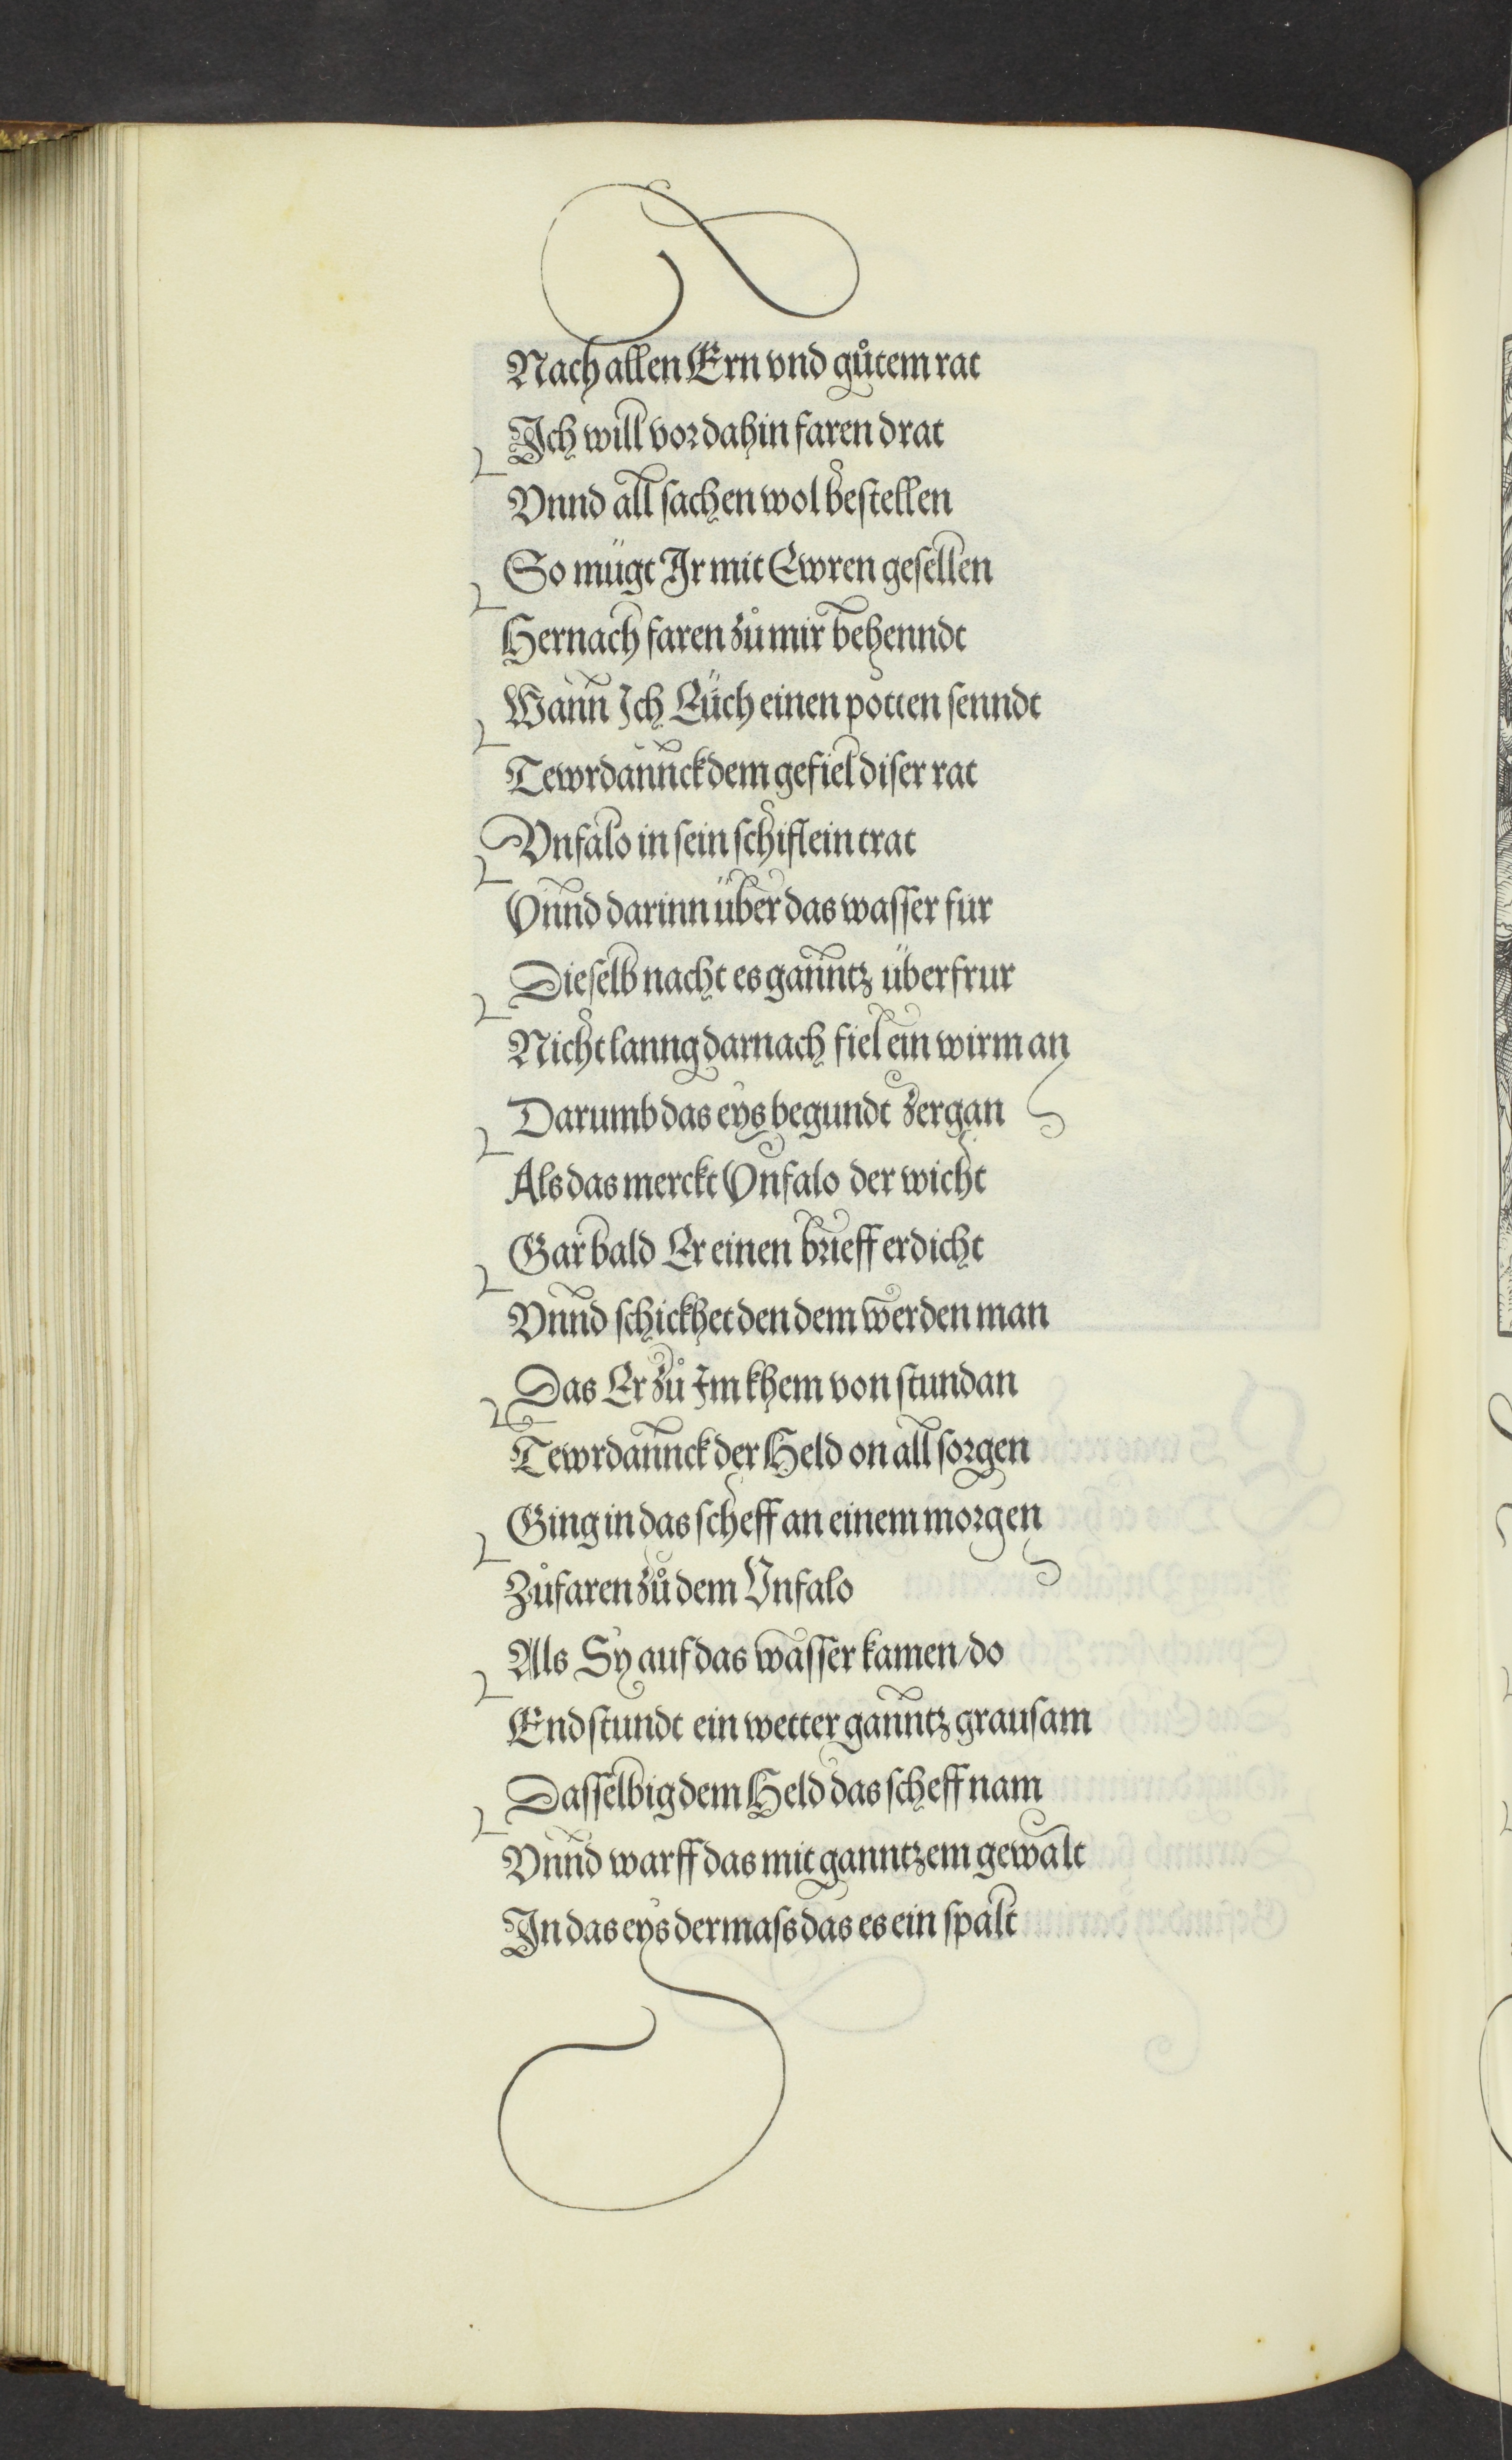 Nach allen Ern vnd gůtem rat
Ich will vor dahin faren drat
Vnnd all sachen wol bestellen
So mügt Ir mit Ewren gesellen
Hernach faren zů mir behenndt
Wann Ich Eüch einen potten senndt
Tewrdannck dem gefiel diser rat
Vnfalo in sein schiflein trat
Vnnd darinn über das wasser fur
Dieselb nacht es ganntz überfrur
Nicht lanng darnach fiel ein wirm an
Darumb das eys begundt zergan
Als das merckt Vnfalo der wicht
Gar bald Er einen brieff erdicht
Vnnd schickhet den dem werden man
Das Er zů Im khem von stundan
Tewrdannck der Held on all sorgen
Ging in das scheff an einem morgen
Zůfaren zů dem Vnfalo
Als Sy auf das wasser kamen/do
Endstundt ein wetter ganntz grausam
Dasselbig dem Held das scheff nam
Vnnd warff das mit ganntzem gewalt
In das eys dermass das es ein spalt